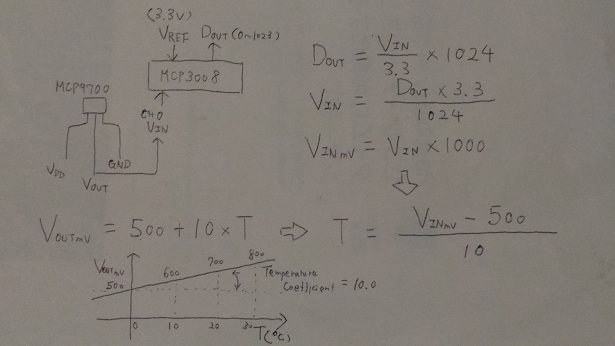 (3.3V)
VREF DOUT (0~1023)
MCP3008
MCP9700
CH0
VIN
VDD
GND
VOUT
DOUT = VIN / 3.3 × 1024
VIN = DOUT × 3.3 / 1024
VINmV = VIN × 1000
VOUTmV = 500 + 10 × T ⇨ T = VINmV - 500 / 10
VOUTmV
500
600
700
800
Temperature
Coefficient = 10.0
0 10 20 30 T(°C)